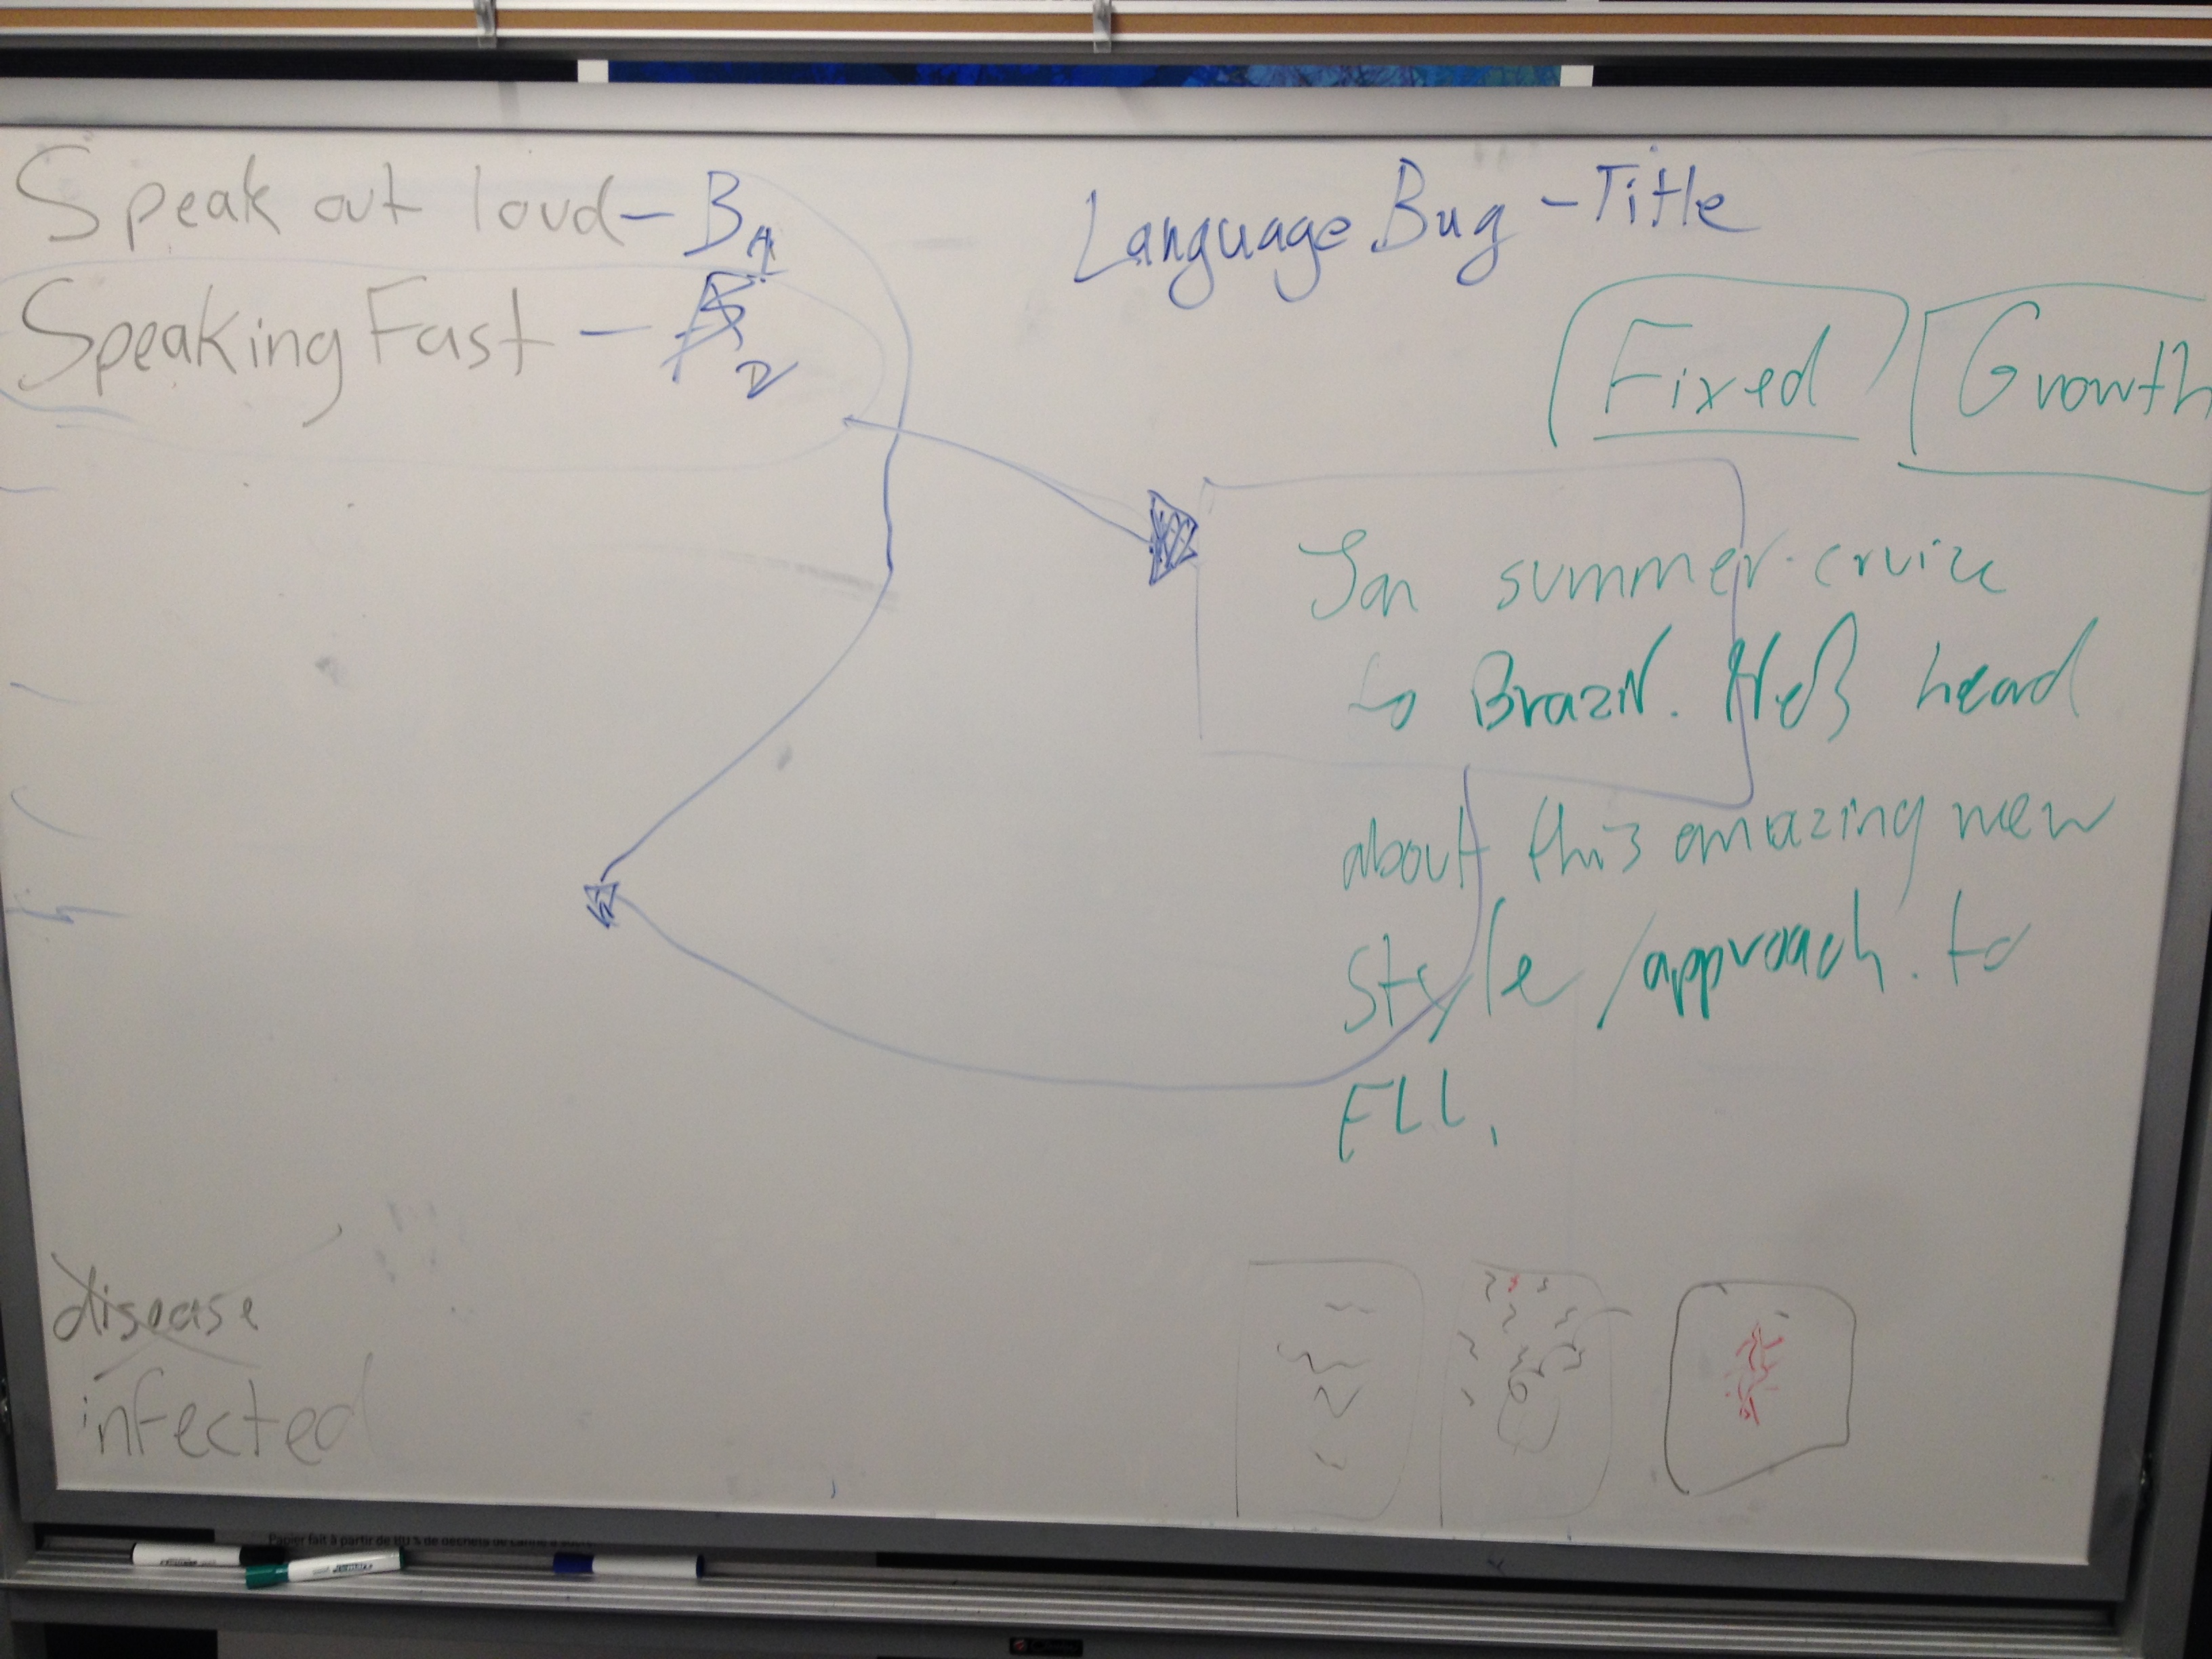 Speak out loud - B1
Speaking Fast - 2
Language Bug - Title
Fixed
Growth
summer cruize
to Brazil. He's heard
about this amazing new
style/approach to
ELL.
disease
infected
Papier fait à partir de